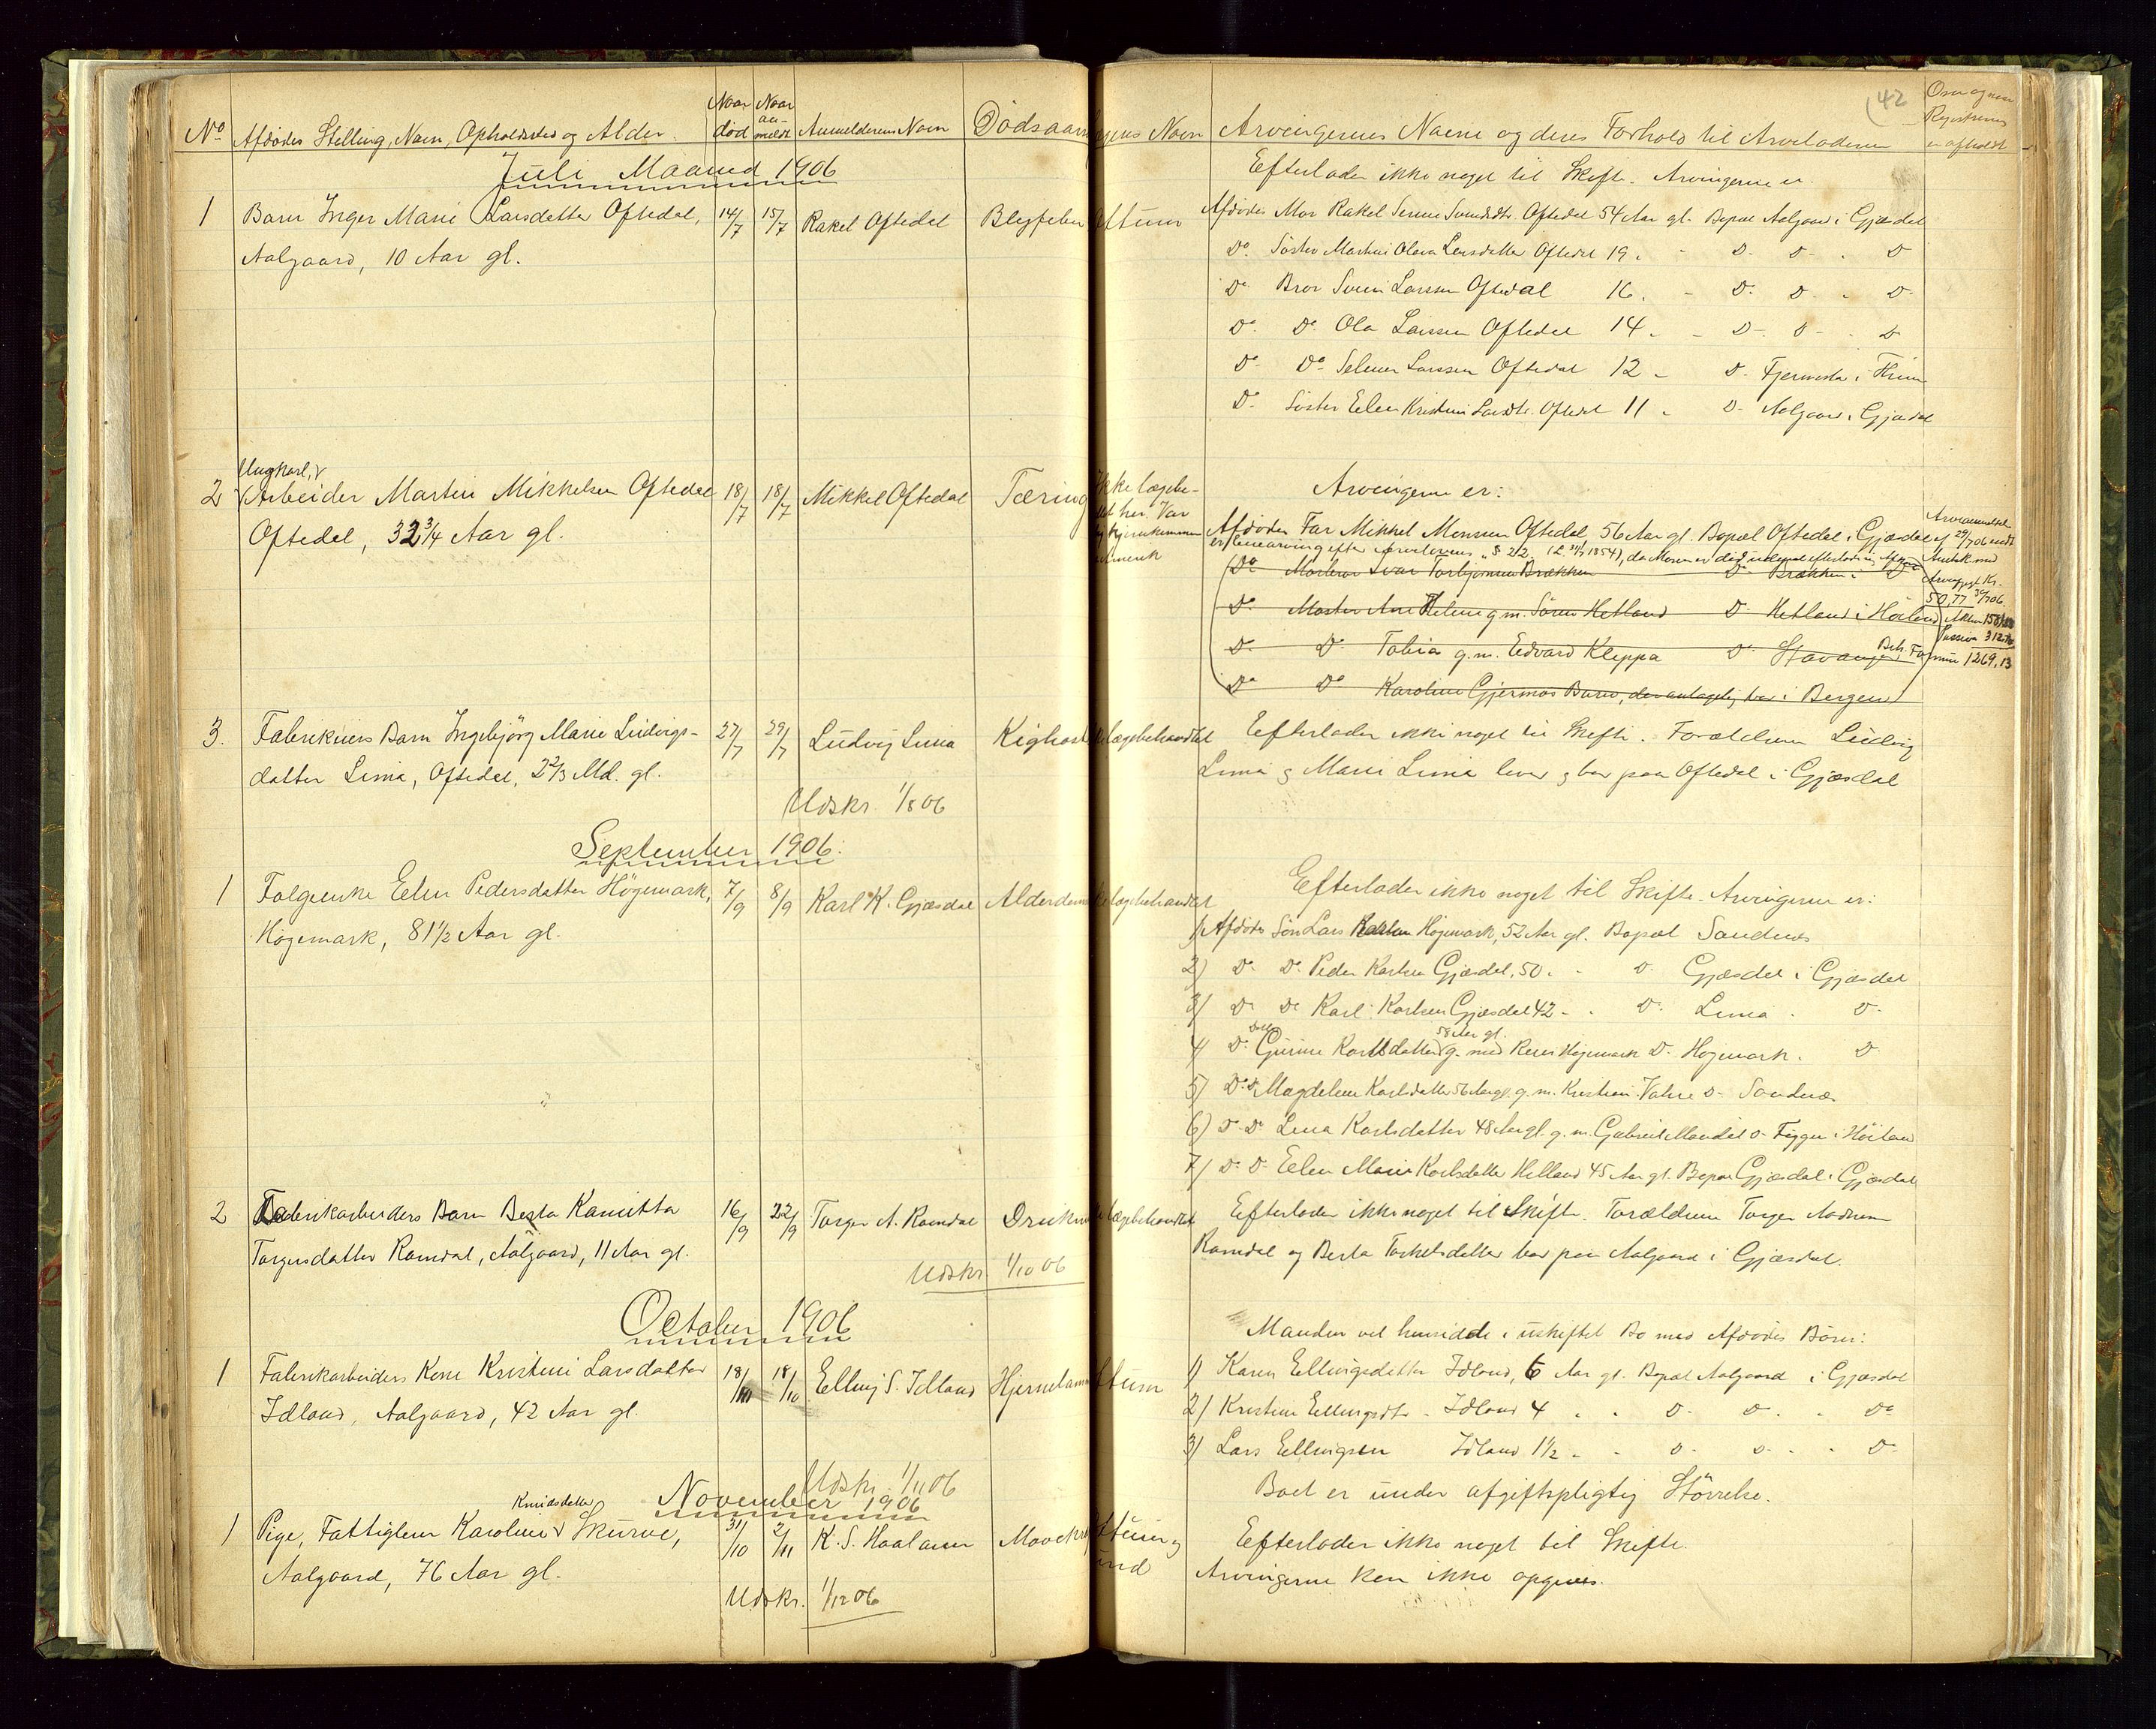 No Afdødes Stilling, Navn, Opholdssted og Alder.
Naar død
Naar an-meldt
Anmelderens Navn
Dødsaarsagens Navn
Juli Maaned 1906
1 Barn Inger Marie Larsdatter Oftedal, 14/7 15/7 Rakel Oftedal Blegfeber
Aalgaard, 10 Aar gl.
Ungkarl, v
2 Arbeider Martin Mikkelsen Oftedal 18/7 18/7 Mikkel Oftedal Tæring
Oftedal, 32 3/4 Aar gl.
3. Fabrikeiers Barn Ingebjörg Marie Ludvigs- 27/7 29/7 Ludvig Lima Kighoste
datter Lima, Oftedal, 2 2/3 Md. gl.
Udskr. 1/8 06
September 1906.
1 Folgeenke Elen Pedersdatter Högemark, 7/9 8/9 Karl K. Gjæsdal Alderdom
Högemark, 81 1/2 Aar gl.
2 Fabrikarbeiders Barn Berta Kamitta 16/9 22/9 Torger A. Ramdal
Torgersdatter Ramdal, Aalgaard, 11 Aar gl.
Udskr. 1/10 06
October 1906
1 Fabrikarbeiders Kone Kristine Larsdatter 18/10 18/10 Elling S. Idland
Idland, Aalgaard, 42 Aar gl.
Udskr. 1/11 06
November 1906
Knudsdatter
1 Pige, Fattiglem Karoline v Skurve, 31/10 2/11 K. S. Haaland
Aalgaard, 76 Aar gl.
Udskr. 1/12 06
42
Arvingernes Navne og deres Forhold til Arveladeren
Om og naar
Registrering
er afholdt
Efterlader ikke noget til Skifte. Arvingerne er.
Attum Afdødes Mor Rakel Serine Svendsdtr. Oftedal 54 Aar gl. Bopæl Aalgaard i Gjæsdal
Do. Söster Martine Olava Larsdatter Oftedal 19. - Do. Do. - Do
Do Bror Svein Larsen Oftedal 16. - Do. Do. - Do.
Do. Do. Ola Larsen Oftedal 14. - Do. Do. - Do
Do. Do. Selmer Larsen Oftedal 12 - Do. Fjermestad i Thime
Do. Söster Elen Kristine Larsdtr. Oftedal 11 - Do. Aalgaard i Gjæsdal
Ikke lægebe-
Arvingerne er:
Afdødes Far Mikkel Monsen Oftedal, 56 Aar gl. Bopæl Oftedal i Gjæsdal
er Enearving efter Arvelovens § 22 (L. 31/7 1854), da Moren er død uden at efterlade sig Afkom
Do Morbror Ivar Torbjørnsen Brækken Do Brækken i Do
Do. Moster Ane Helene g.m. Sören Hetland Do. Hetland i Höiland
Do. Do. Tobia g.m. Edvard Kleppa Do. Stavanger
Do Do Karoline Gjermos Barn, der antagelig bor i Bergen
50,77
1269,13
lægebehandlet Efterlader ikke noget til Skifte. Forældrene Ludvig
Lima og Marie Lima lever og bor paa Oftedal i Gjæsdal
Efterlader ikke noget til Skifte. Arvingerne er:
lægebehandlet
1) Afdødes Sön Lars Karlsen Högemark, 52 Aar gl. Bopæl Sandnes
2) Do. Do. Peder Karlsen Gjæsdal, 50. - Do. Gjæsdal i Gjæsdal
3) Do. Do Karl Karlsen Gjæsdal 42 - . Do. Lima . Do.
Dattr 58 Aar gl.
4) Do. Gurine Karlsdatter g. med Reier Högemark Do. Högemark . Do.
5) Do. Do Magdelene Karlsdatter 56 Aar gl. g.m. Kristian Vatne Do. Sandnes
6) Do. Do Lina Karlsdatter 48 Aar gl. g.m. Gabriel Mandal Do. Figgen i Höiland
7) Do. Do. Elen Marie Karlsdatter Helland 45 Aar gl. Bopæl Gjæsdal i Gjæsdal
lægebehandlet Efterlader ikke noget til Skifte. Forældrene Torger
Ramdal og Berta Torkelsdatter bor paa Aalgaard i Gjæsdal.
Manden vil hensidde i uskiftet Bo med Afdødes Börn:
1) Karen Ellingsdatter Idland, 6 Aar gl. Bopæl Aalgaard i Gjæsdal
2) Kristine Ellingsdtr. - Idland 4 . . Do. Do. . Do
3) Lars Ellingsen Idland 1 1/2 - - Do. Do. - - Do.
Boet er under afgiftspligtig Störrelse.
Efterlader ikke noget til Skifte.
Arvingerne kan ikke opgives.